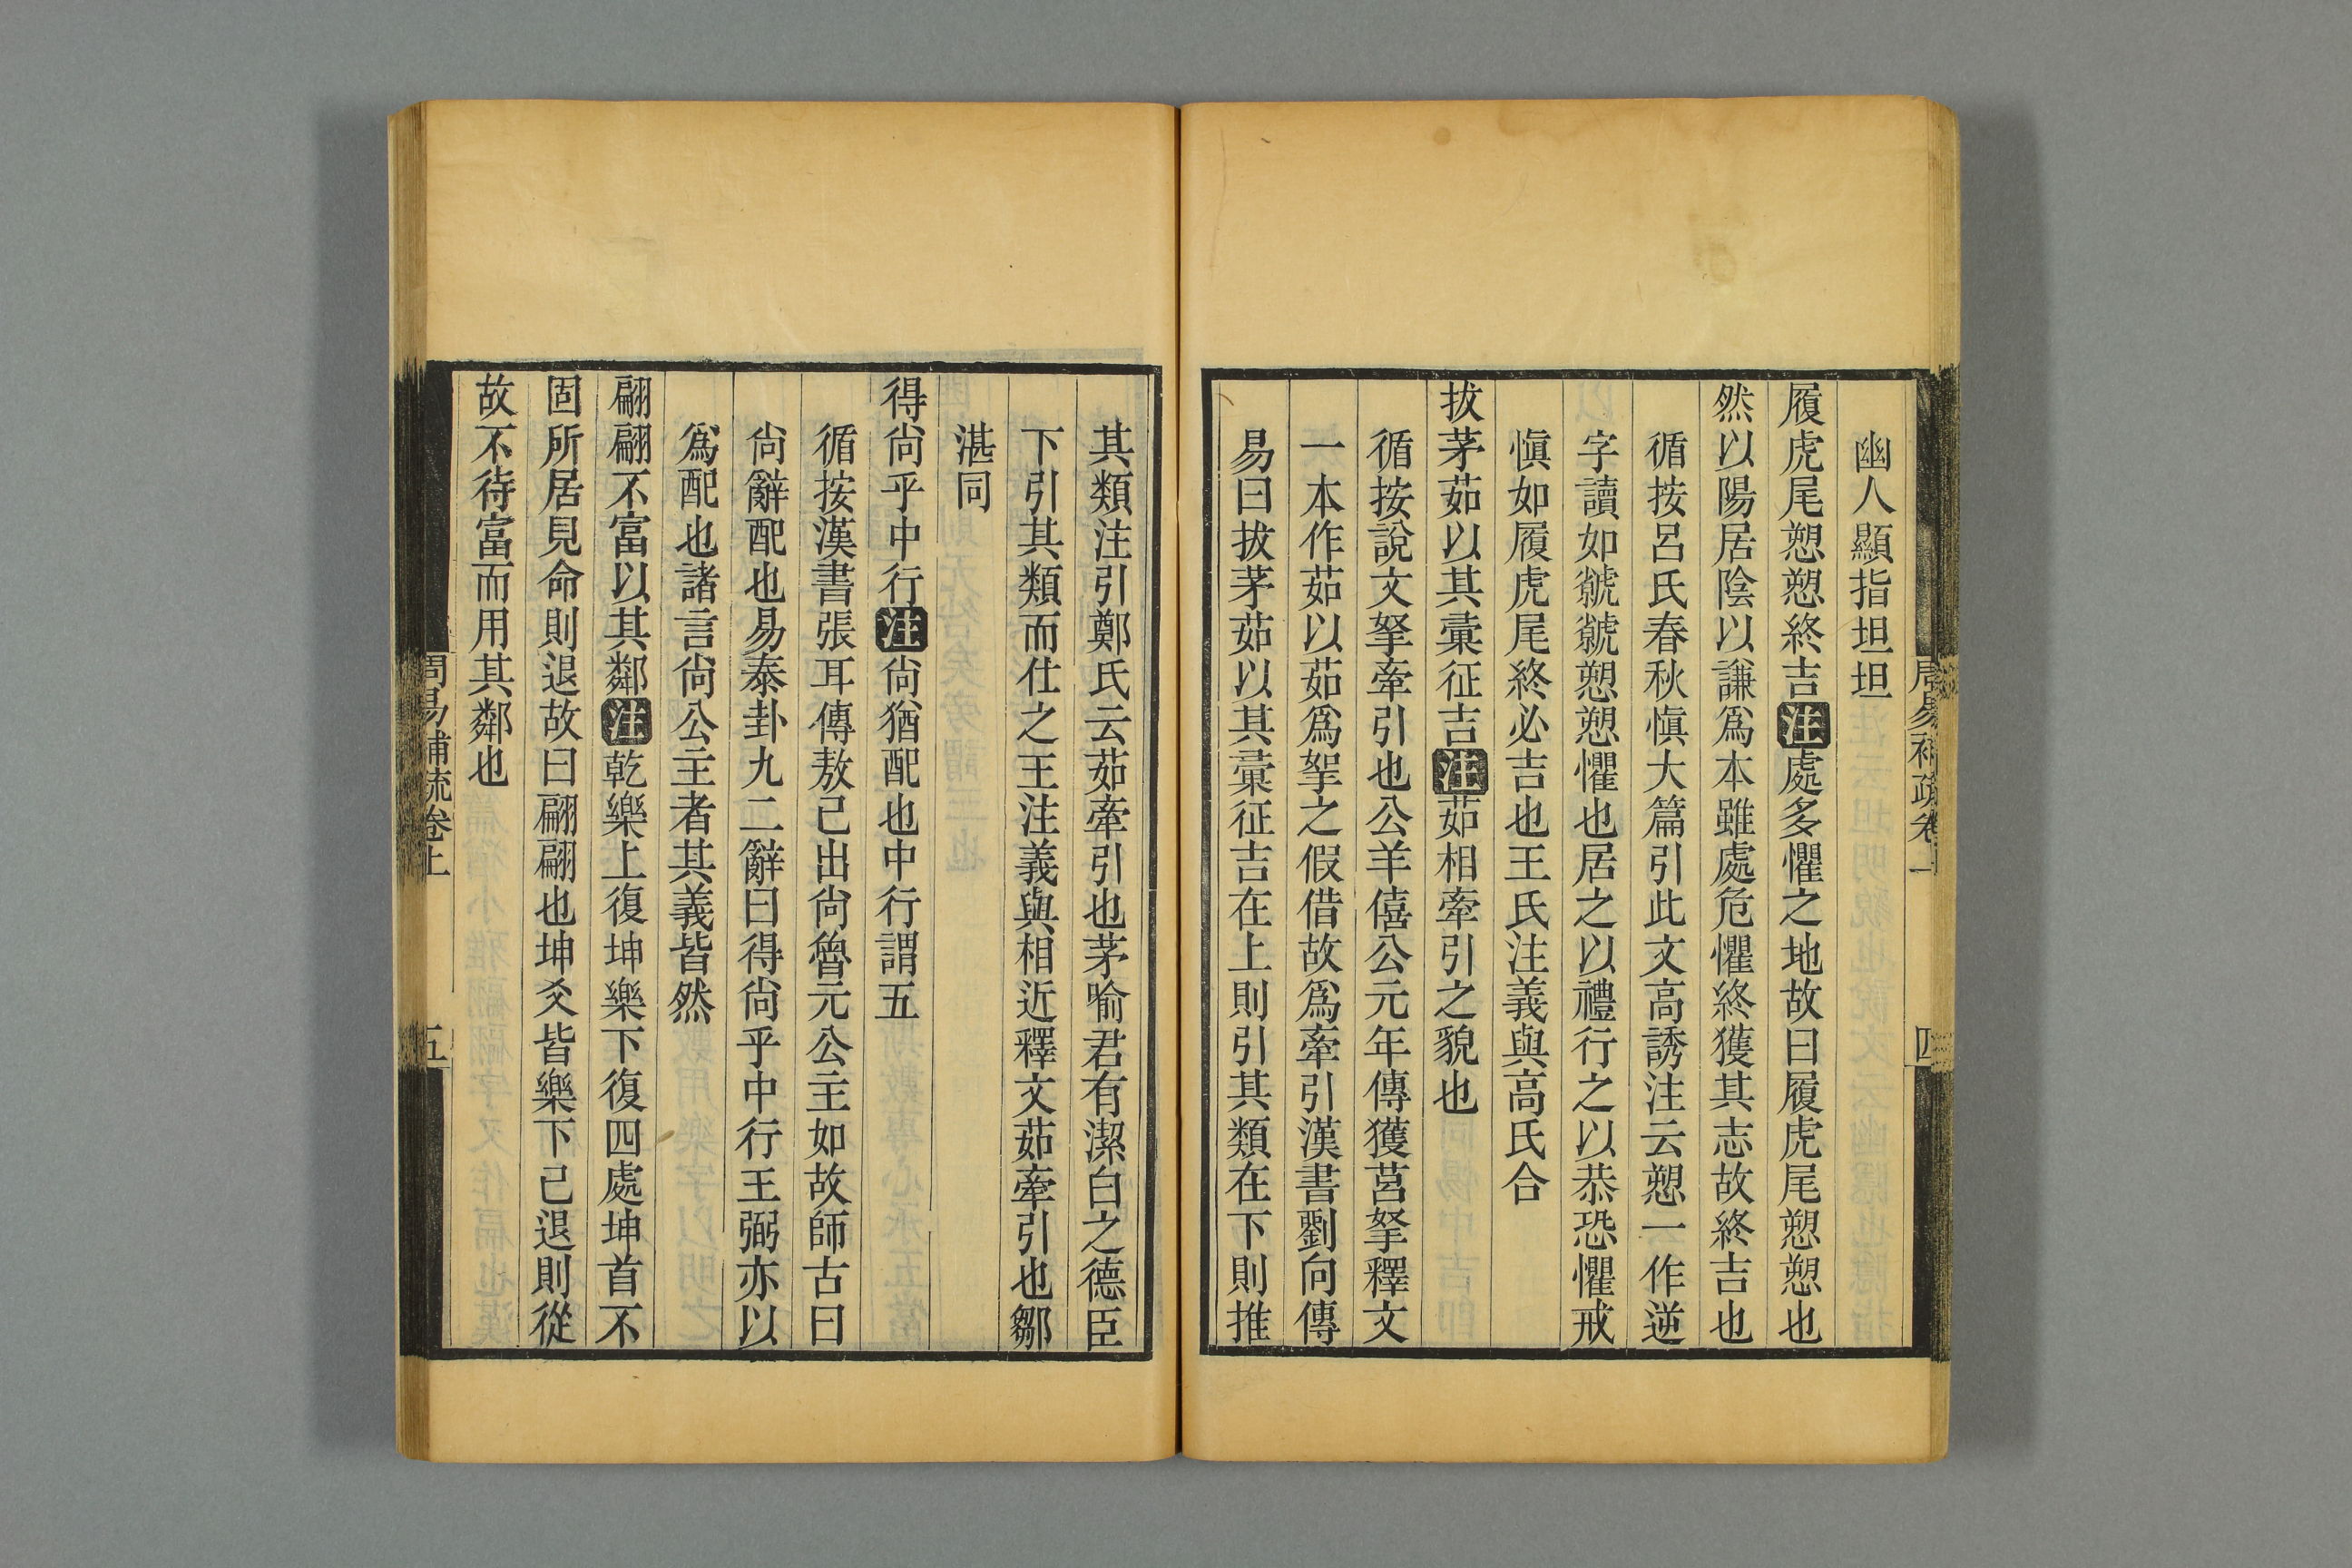 幽人顯指坦坦
履虎尾愬愬終吉注處多懼之地故曰履虎尾愬愬也
然以陽居陰以謙爲本雖處危懼終獲其志故終吉也
循按呂氏春秋愼大篇引此文高誘注云愬一作逆
字讀如虩虩愬愬懼也居之以禮行之以恭恐懼戒
愼如履虎尾終必吉也王氏注義與高氏合
拔茅茹以其彙征吉注茹相牽引之貌也
循按說文拏牽引也公羊僖公元年傳獲莒拏釋文
一本作茹以茹爲挐之假借故爲牽引漢書劉向傳
易曰拔茅茹以其彙征吉在上則引其類在下則推
其類注引鄭氏云茹牽引也茅喻君有潔白之德臣
下引其類而仕之王注義與相近釋文茹牽引也鄒
湛同
得尙乎中行注尙猶配也中行謂五
循按漢書張耳傳敖已出尙魯元公主如故師古曰
尙辭配也易泰卦九二辭曰得尙乎中行王弼亦以
爲配也諸言尙公主者其義皆然
翩翩不富以其鄰注乾樂上復坤樂下復四處坤首不
固所居見命則退故曰翩翩也坤爻皆樂下己退則從
故不待富而用其鄰也
周易補疏卷上
五